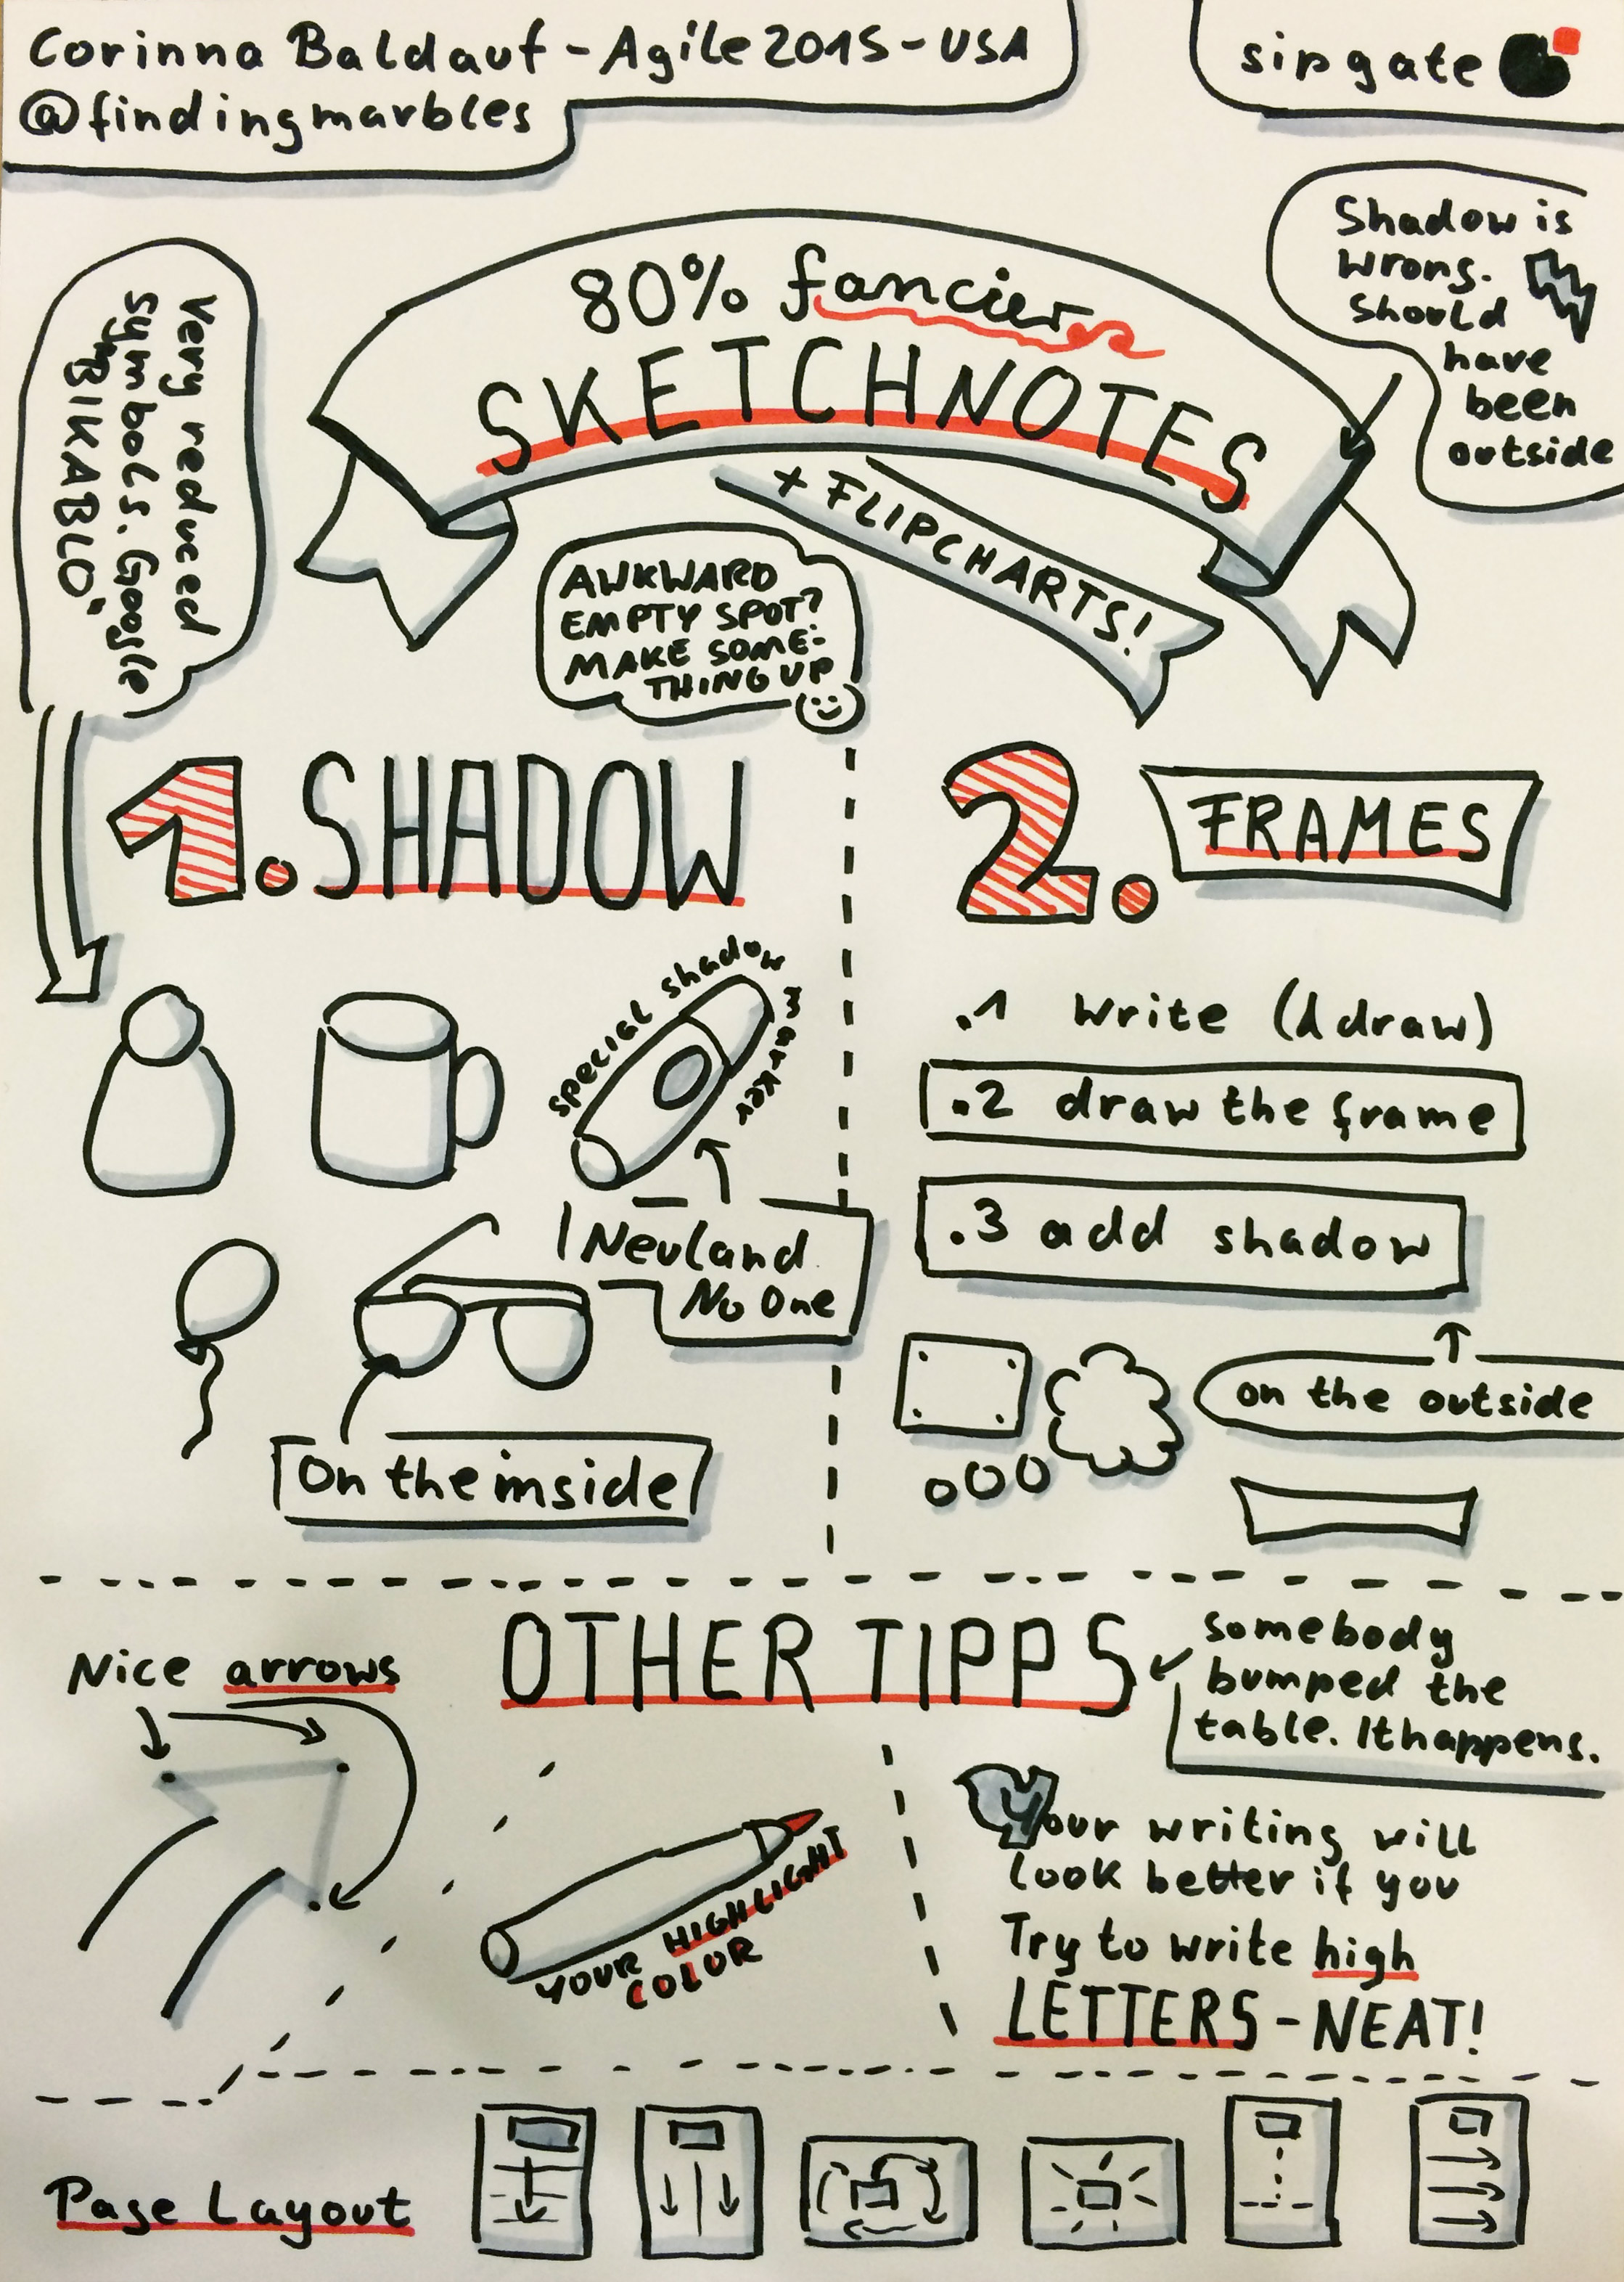 Corinna Baldauf - Agile2015 - USA
@findingmarbles
sipgate
Shadow is
wrong.
Should
have
been
outside
Very reduced
symbols. Google
"BIKABLO"
80% fancier
SKETCHNOTES
+ FLIPCHARTS!
AWKWARD
EMPTY SPOT?
MAKE SOME-
THING UP
1. SHADOW
special shadow marker
Neuland
No One
On the inside
2. FRAMES
.1 write (& draw)
.2 draw the frame
.3 add shadow
on the outside
OTHER TIPPS
somebody
bumped the
table. It happens.
Nice arrows
YOUR HIGHLIGHT
COLOR
Your writing will
look better if you
Try to write high
LETTERS - NEAT!
Page Layout